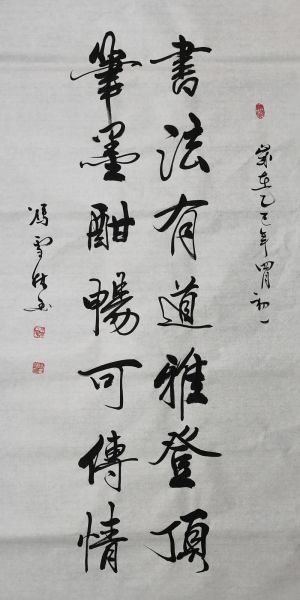 歲在乙巳年四月初一
書法有道雅登頂
筆墨酣暢可傳情
馮雪林書